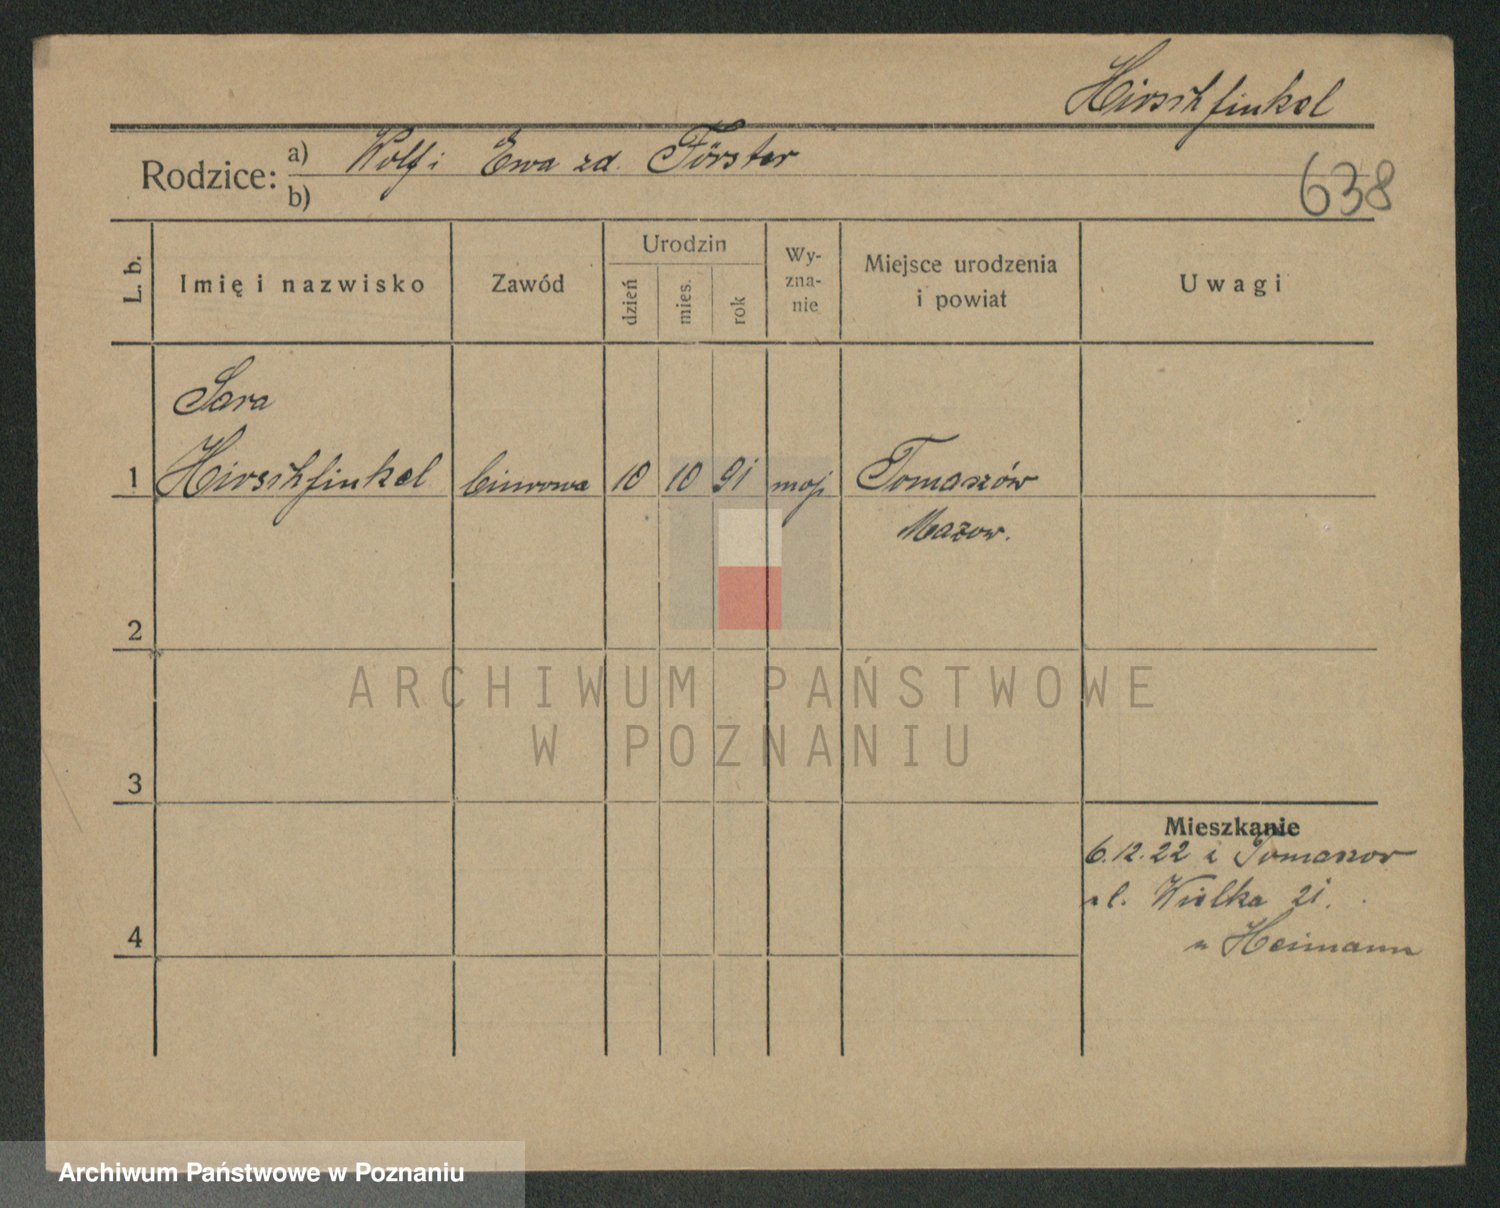 Hirschfinkel
Rodzice: a) Wolf i Ewa zd. Förster
b)
638
L. b.
Imię i nazwisko
Zawód
Urodzin
dzień
mies.
rok
Wy-
zna-
nie
Miejsce urodzenia
i powiat
Uwagi
Sara
1 Hirschfinkel biurowa 10 10 91 mojż Tomaszów
Mazow.
2
3
4
Mieszkanie
6.12.22 z Tomaszow
ul. Wielka 21.
u Heimann
ARCHIWUM PAŃSTWOWE
W POZNANIU
Archiwum Państwowe w Poznaniu